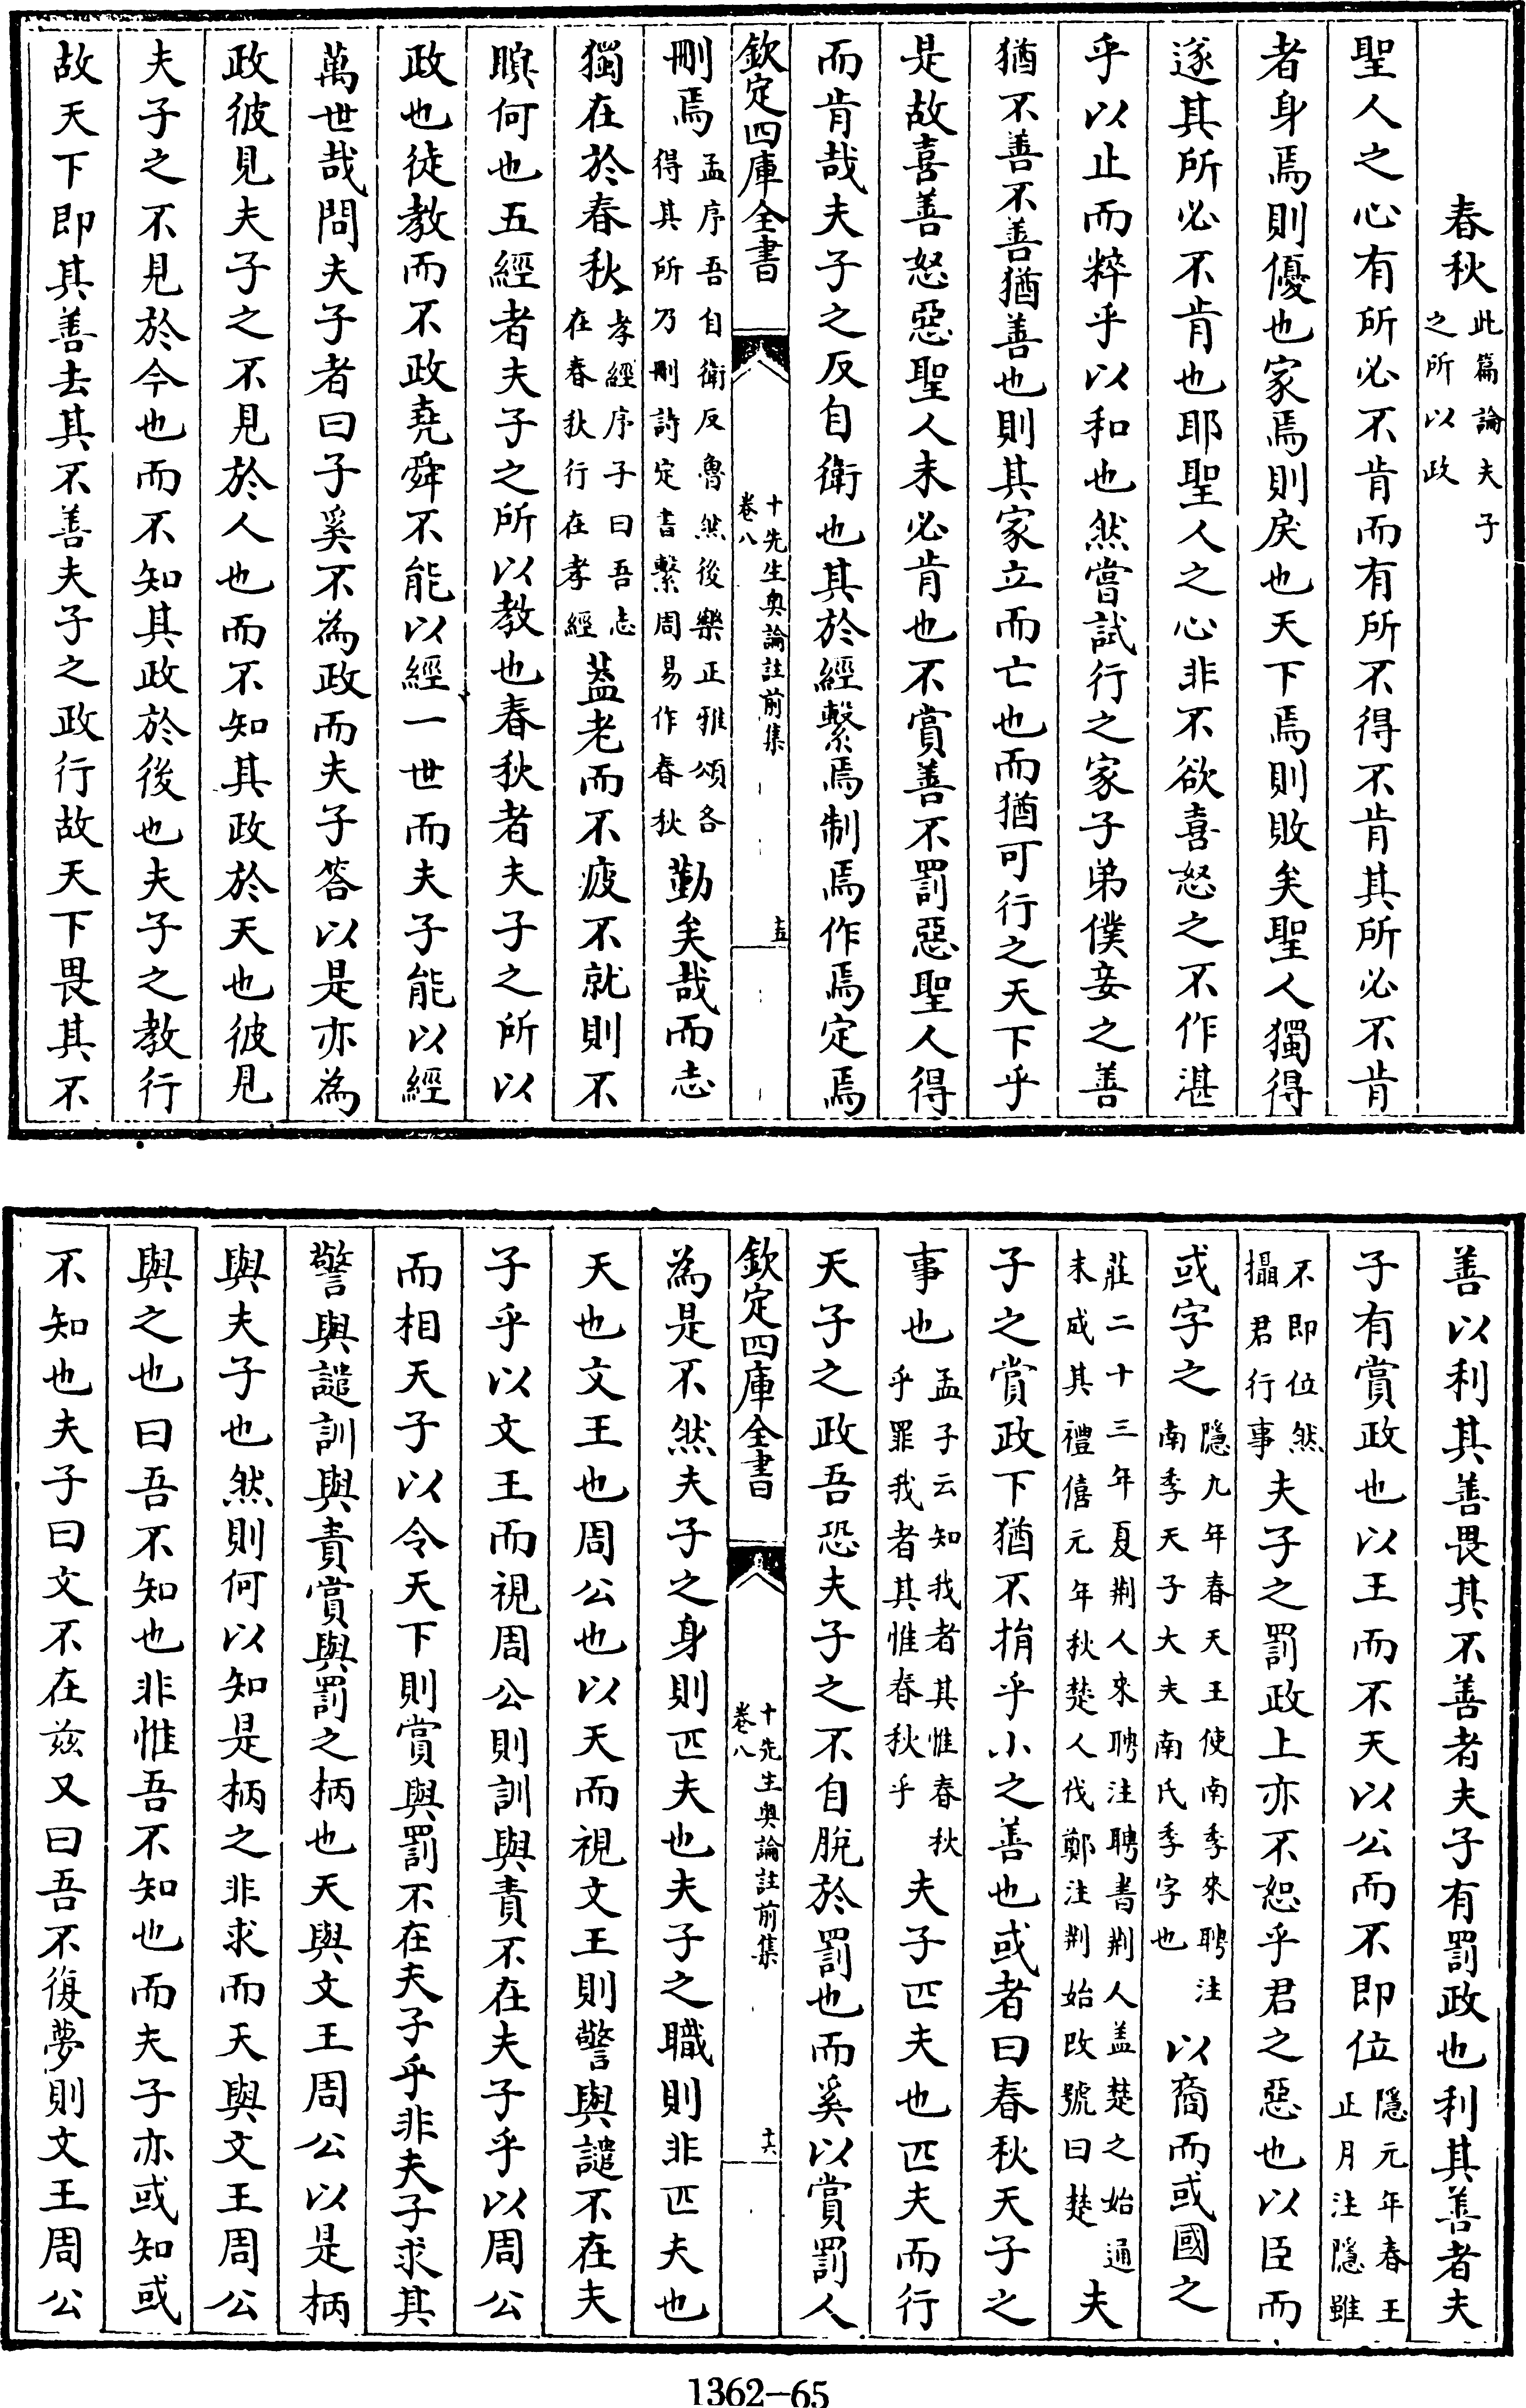 春秋此篇論夫子之所以政
聖人之心有所必不肯而有所不得不肯其所必不肯
者身焉則優也家焉則戾也天下焉則敗矣聖人獨得
遂其所必不肯也耶聖人之心非不欲喜怒之不作湛
乎以止而粹乎以和也然嘗試行之家子弟僕妾之善
猶不善不善猶善也則其家立而亡也而猶可行之天下乎
是故喜善怒惡聖人未必肯也不賞善不罰惡聖人得
而肯哉夫子之反自衛也其於經繫焉制焉作焉定焉
欽定四庫全書 卷八 十先生奧論註前集 十五
刪焉孟序吾自衛反魯然後樂正雅頌各得其所乃刪詩定書繫周易作春秋勤矣哉而志
獨在於春秋孝經序子曰吾志在春秋行在孝經蓋老而不疲不就則不
瞑何也五經者夫子之所以教也春秋者夫子之所以
政也徒教而不政堯舜不能以經一世而夫子能以經
萬世哉問夫子者曰子奚不為政而夫子答以是亦為
政彼見夫子之不見於人也而不知其政於天也彼見
夫子之不見於今也而不知其政於後也夫子之教行
故天下即其善去其不善夫子之政行故天下畏其不
善以利其善畏其不善者夫子有罰政也利其善者夫
子有賞政也以王而不天以公而不即位隱元年春王正月注隱雖
不即位然攝君行事夫子之罰政上亦不恕乎君之惡也以臣而
或字之隱九年春天王使南季來聘注南季天子大夫南氏季字也以裔而或國之
莊二十三年夏荆人來聘注聘書荆人盖楚之始通未成其禮僖元年秋楚人伐鄭注荆始改號曰楚夫
子之賞政下猶不捐乎小之善也或者曰春秋天子之
事也孟子云知我者其惟春秋乎罪我者其惟春秋乎夫子匹夫也匹夫而行
天子之政吾恐夫子之不自脫於罰也而奚以賞罰人
欽定四庫全書 卷八 十先生奧論註前集 十六
為是不然夫子之身則匹夫也夫子之職則非匹夫也
天也文王也周公也以天而視文王則警與譴不在夫
子乎以文王而視周公則訓與責不在夫子乎以周公
而相天子以令天下則賞與罰不在夫子乎非夫子求其
警與譴訓與責賞與罰之柄也天與文王周公以是柄
與夫子也然則何以知是柄之非求而天與文王周公
與之也曰吾不知也非惟吾不知也而夫子亦或知或
不知也夫子曰文不在茲又曰吾不復夢則文王周公
1362-65